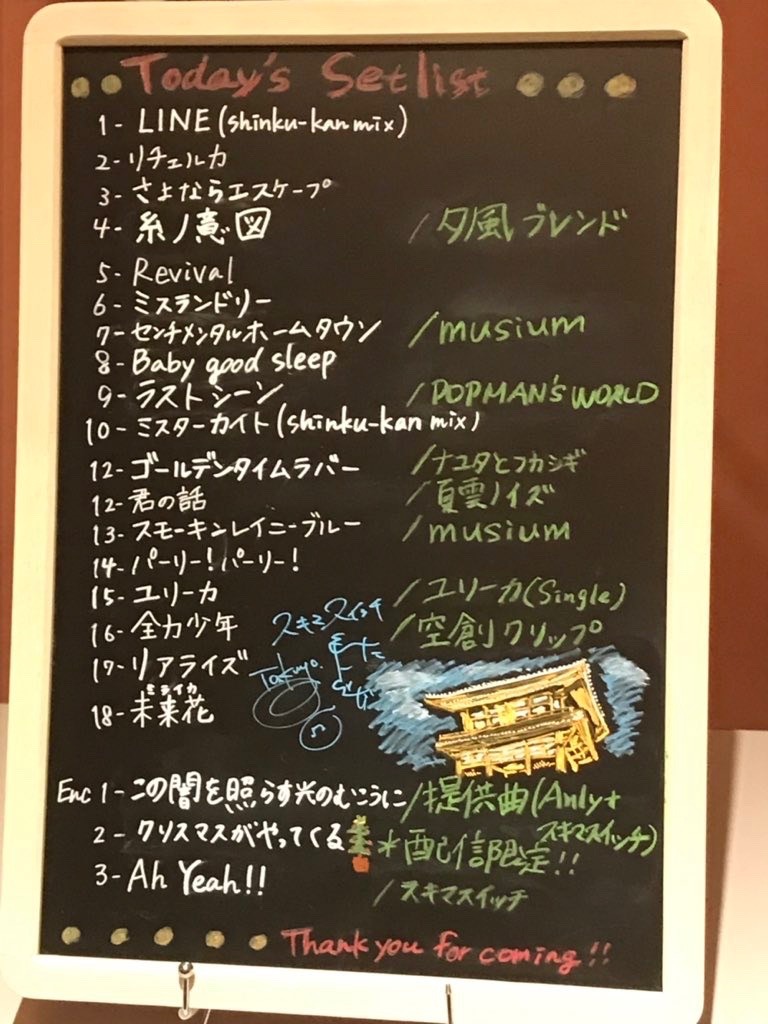 Today's Setlist
1- LINE (shinku-kan mix)
2- リチェルカ
3- さよならエスケープ
4- 糸ノ意図 /夕風ブレンド
5- Revival
6- ミスランドリー
7- センチメンタルホームタウン /musium
8- Baby good sleep
9- ラストシーン /POPMAN'S WORLD
10- ミスターカイト(shinku-kan mix)
12- ゴールデンタイムラバー /ナユタとフカシギ
12- 君の話 /夏雲ノイズ
13- スモーキンレイニーブルー /musium
14- パーリー!パーリー!
15- ユリーカ /ユリーカ(Single)
16- 全力少年 /空創クリップ
スキマスイッチ
17- リアライズ
Takuya.
ミライカ
18- 未来花
Enc 1- この闇を照らす光のむこうに /提供曲(Anly+
スキマスイッチ)
2- クリスマスがやってくる *配信限定!!
3- Ah Yeah!! /スキマスイッチ
Thank you for coming!!